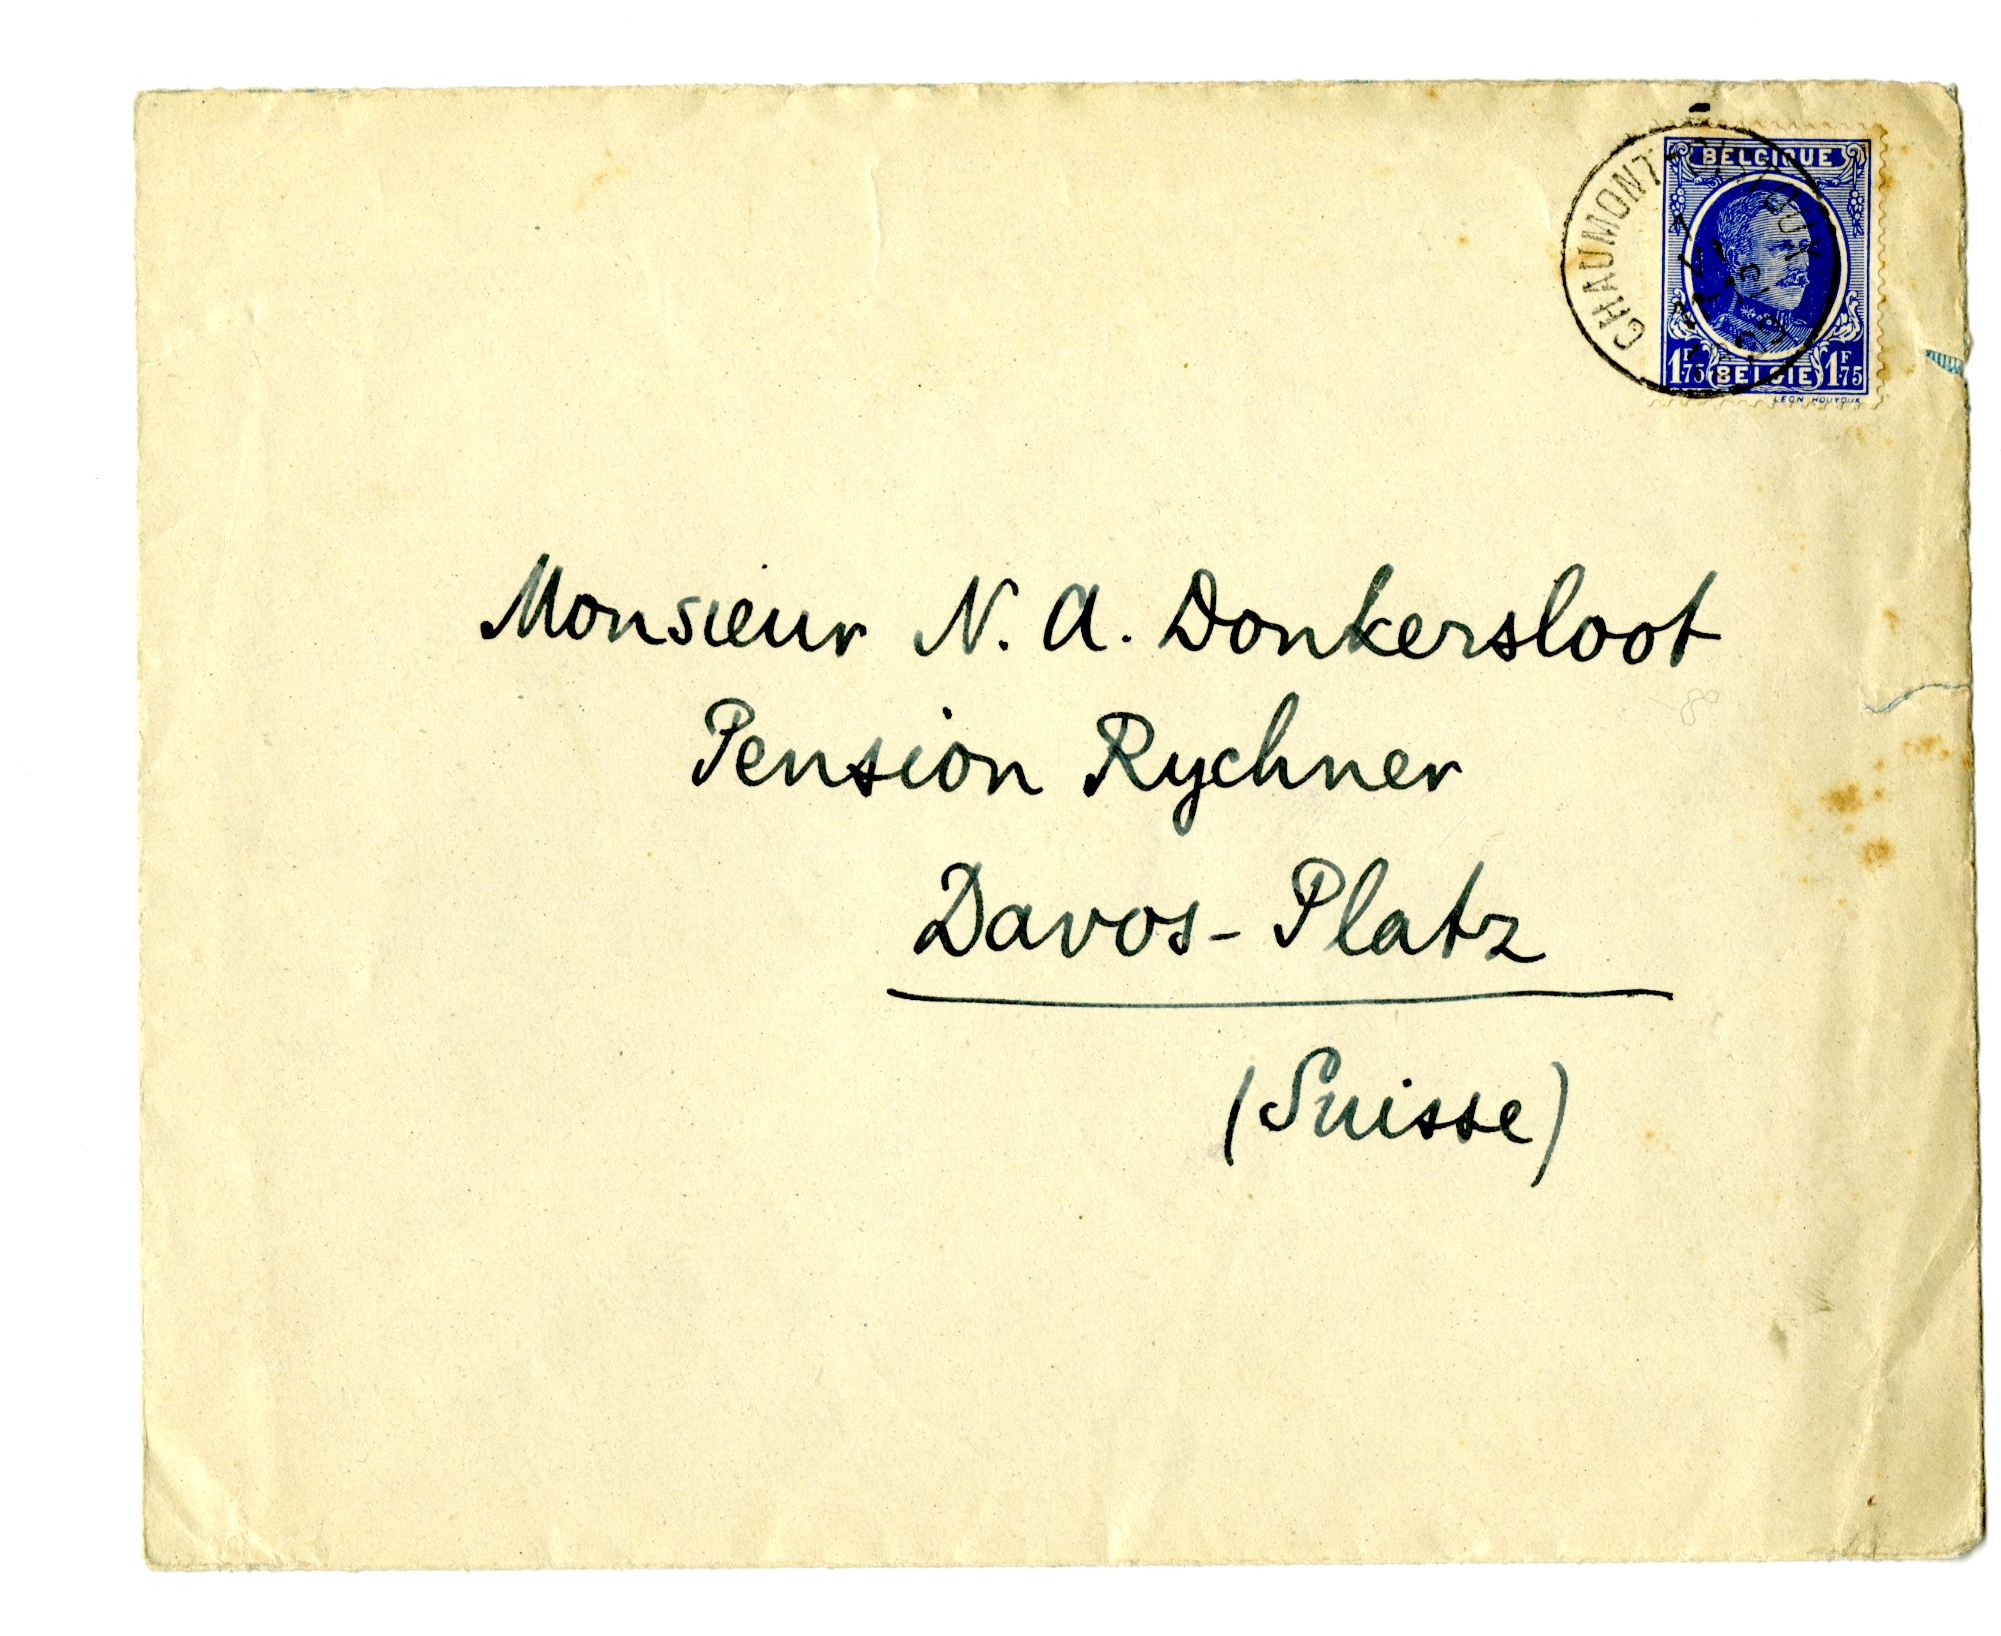 BELGIQUE
CHAUMONT-GISTOUX
1F75 BELGIE 1F75
LEON HOUYOUX
Monsieur N. A. Donkersloot
Pension Rychner
Davos-Platz
(Suisse)